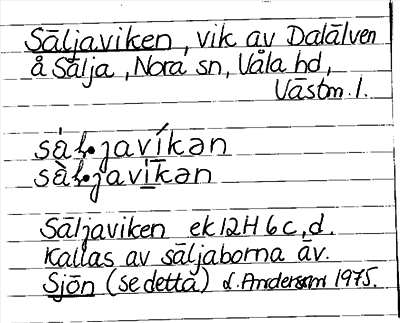 Säljaviken, vik av Dalälven
å Sälja, Nora sn, Våla hd,
Västm. l.
sàl̨•javíkən
sàl̨•javi̱̅kən
Säljaviken ek 12H 6c,d.
Kallas av säljaborna äv.
Sjön (se detta) L. Andersson 1975.